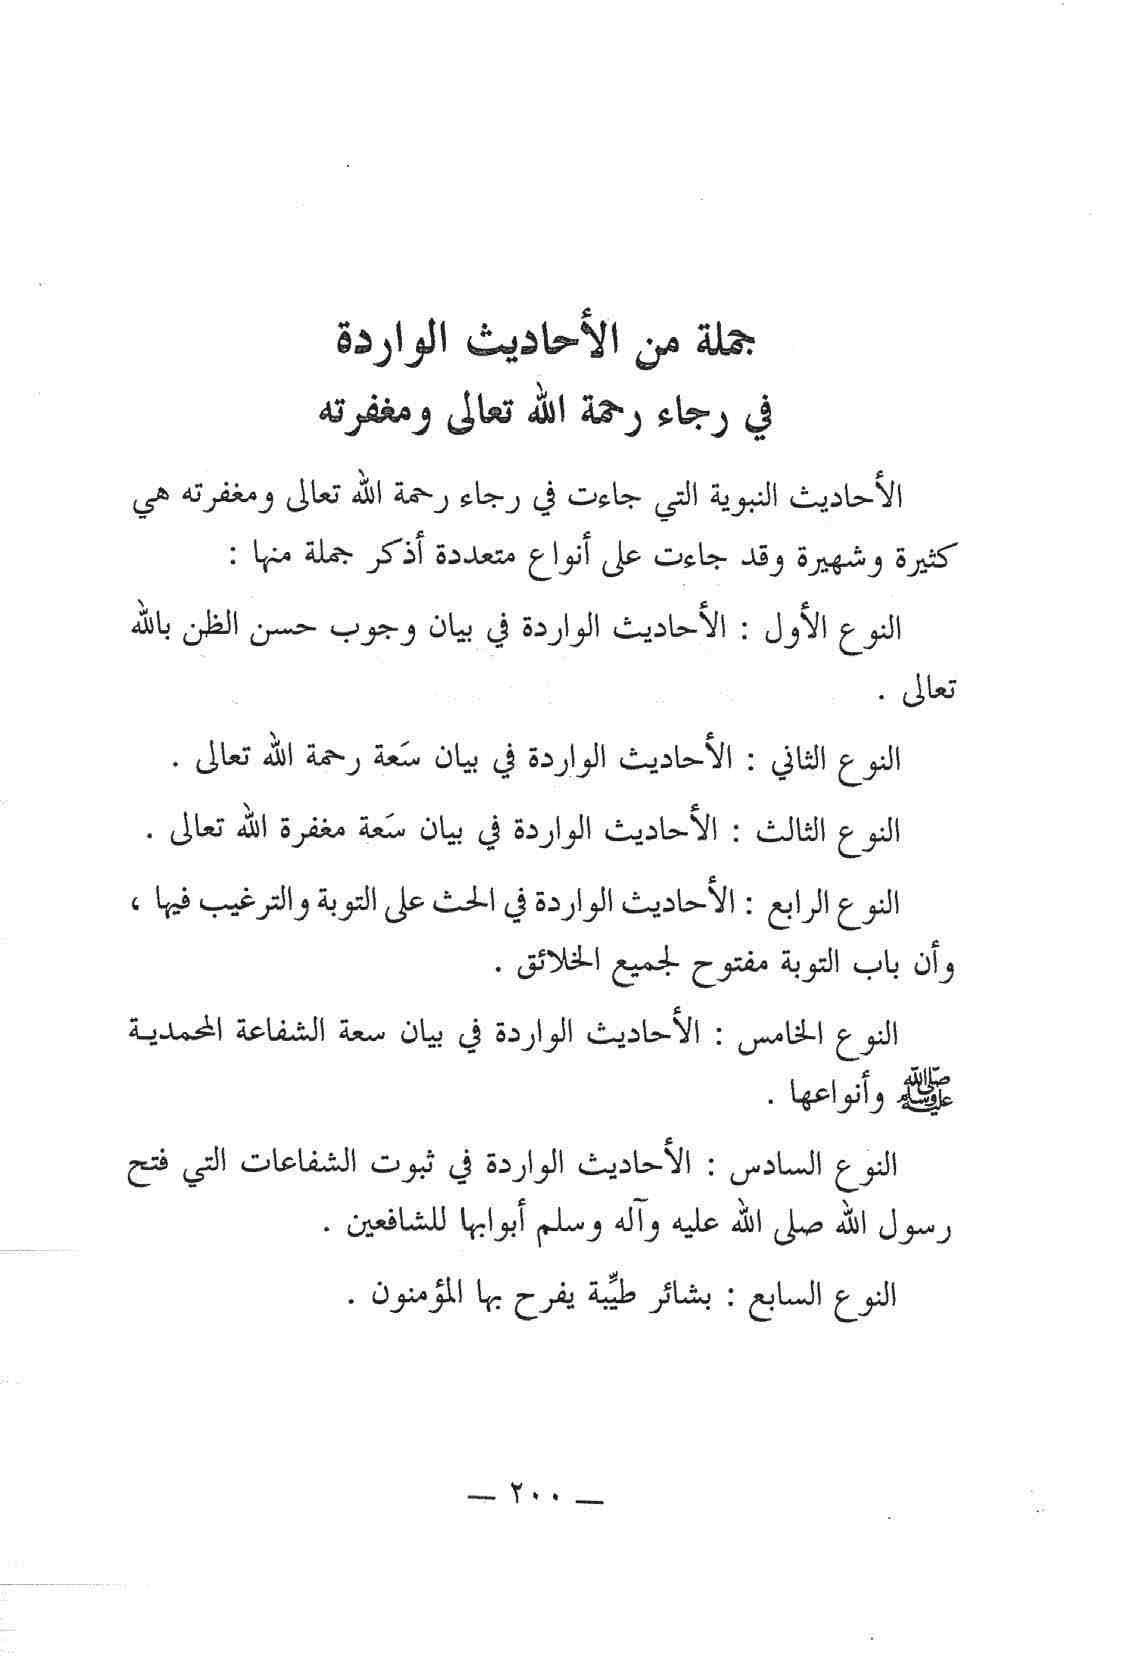 جملة من الأحاديث الواردة
في رجاء رحمة الله تعالى ومغفرته
الأحاديث النبوية التي جاءت في رجاء رحمة الله تعالى ومغفرته هي
كثيرة وشهيرة وقد جاءت على أنواع متعددة أذكر جملة منها :
النوع الأول : الأحاديث الواردة في بيان وجوب حسن الظن بالله
تعالى .
النوع الثاني : الأحاديث الواردة في بيان سَعة رحمة الله تعالى .
النوع الثالث : الأحاديث الواردة في بيان سَعة مغفرة الله تعالى .
النوع الرابع : الأحاديث الواردة في الحث على التوبة والترغيب فيها ،
وأن باب التوبة مفتوح لجميع الخلائق .
النوع الخامس : الأحاديث الواردة في بيان سعة الشفاعة المحمديـة
ﷺ وأنواعها .
النوع السادس : الأحاديث الواردة في ثبوت الشفاعات التي فتح
رسول الله صلى الله عليه وآله وسلم أبوابها للشافعين .
النوع السابع : بشائر طيِّبة يفرح بها المؤمنون .
— ٢٠٠ —